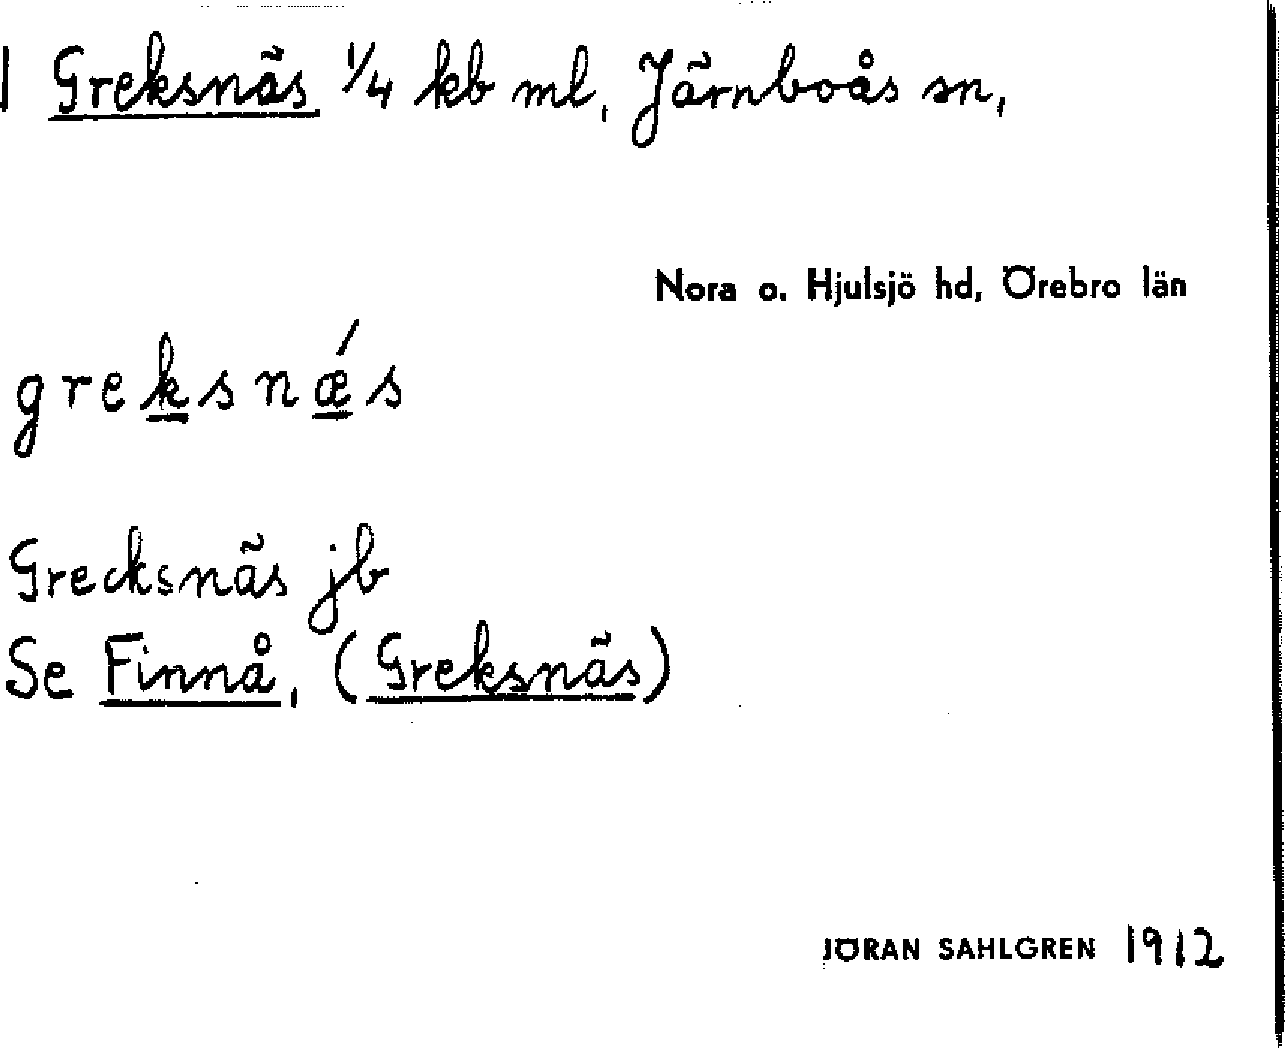 1 Greksnäs 1/4 kb ml, Järnboås sn,
Nora o. Hjulsjö hd, Örebro län
greksnǽs
Grecksnäs jb
Se Finnå, (Greksnäs)
JÖRAN SAHLGREN 1912